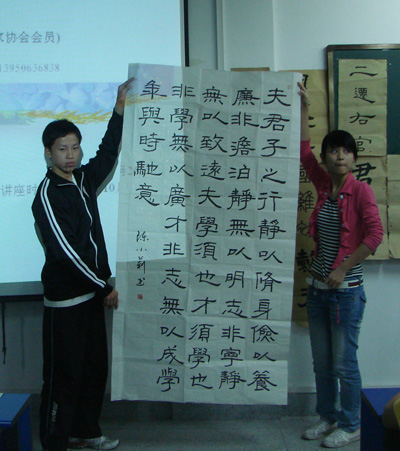 协会会员)
13950636838
讲座时
10
夫君子之行靜以脩身儉以養
廉非澹泊靜無以明志非寧靜
無以致遠夫學須也才須學也
非學無以廣才非志無以成學
年與時馳意
陈小莉书
二遷右宮
君